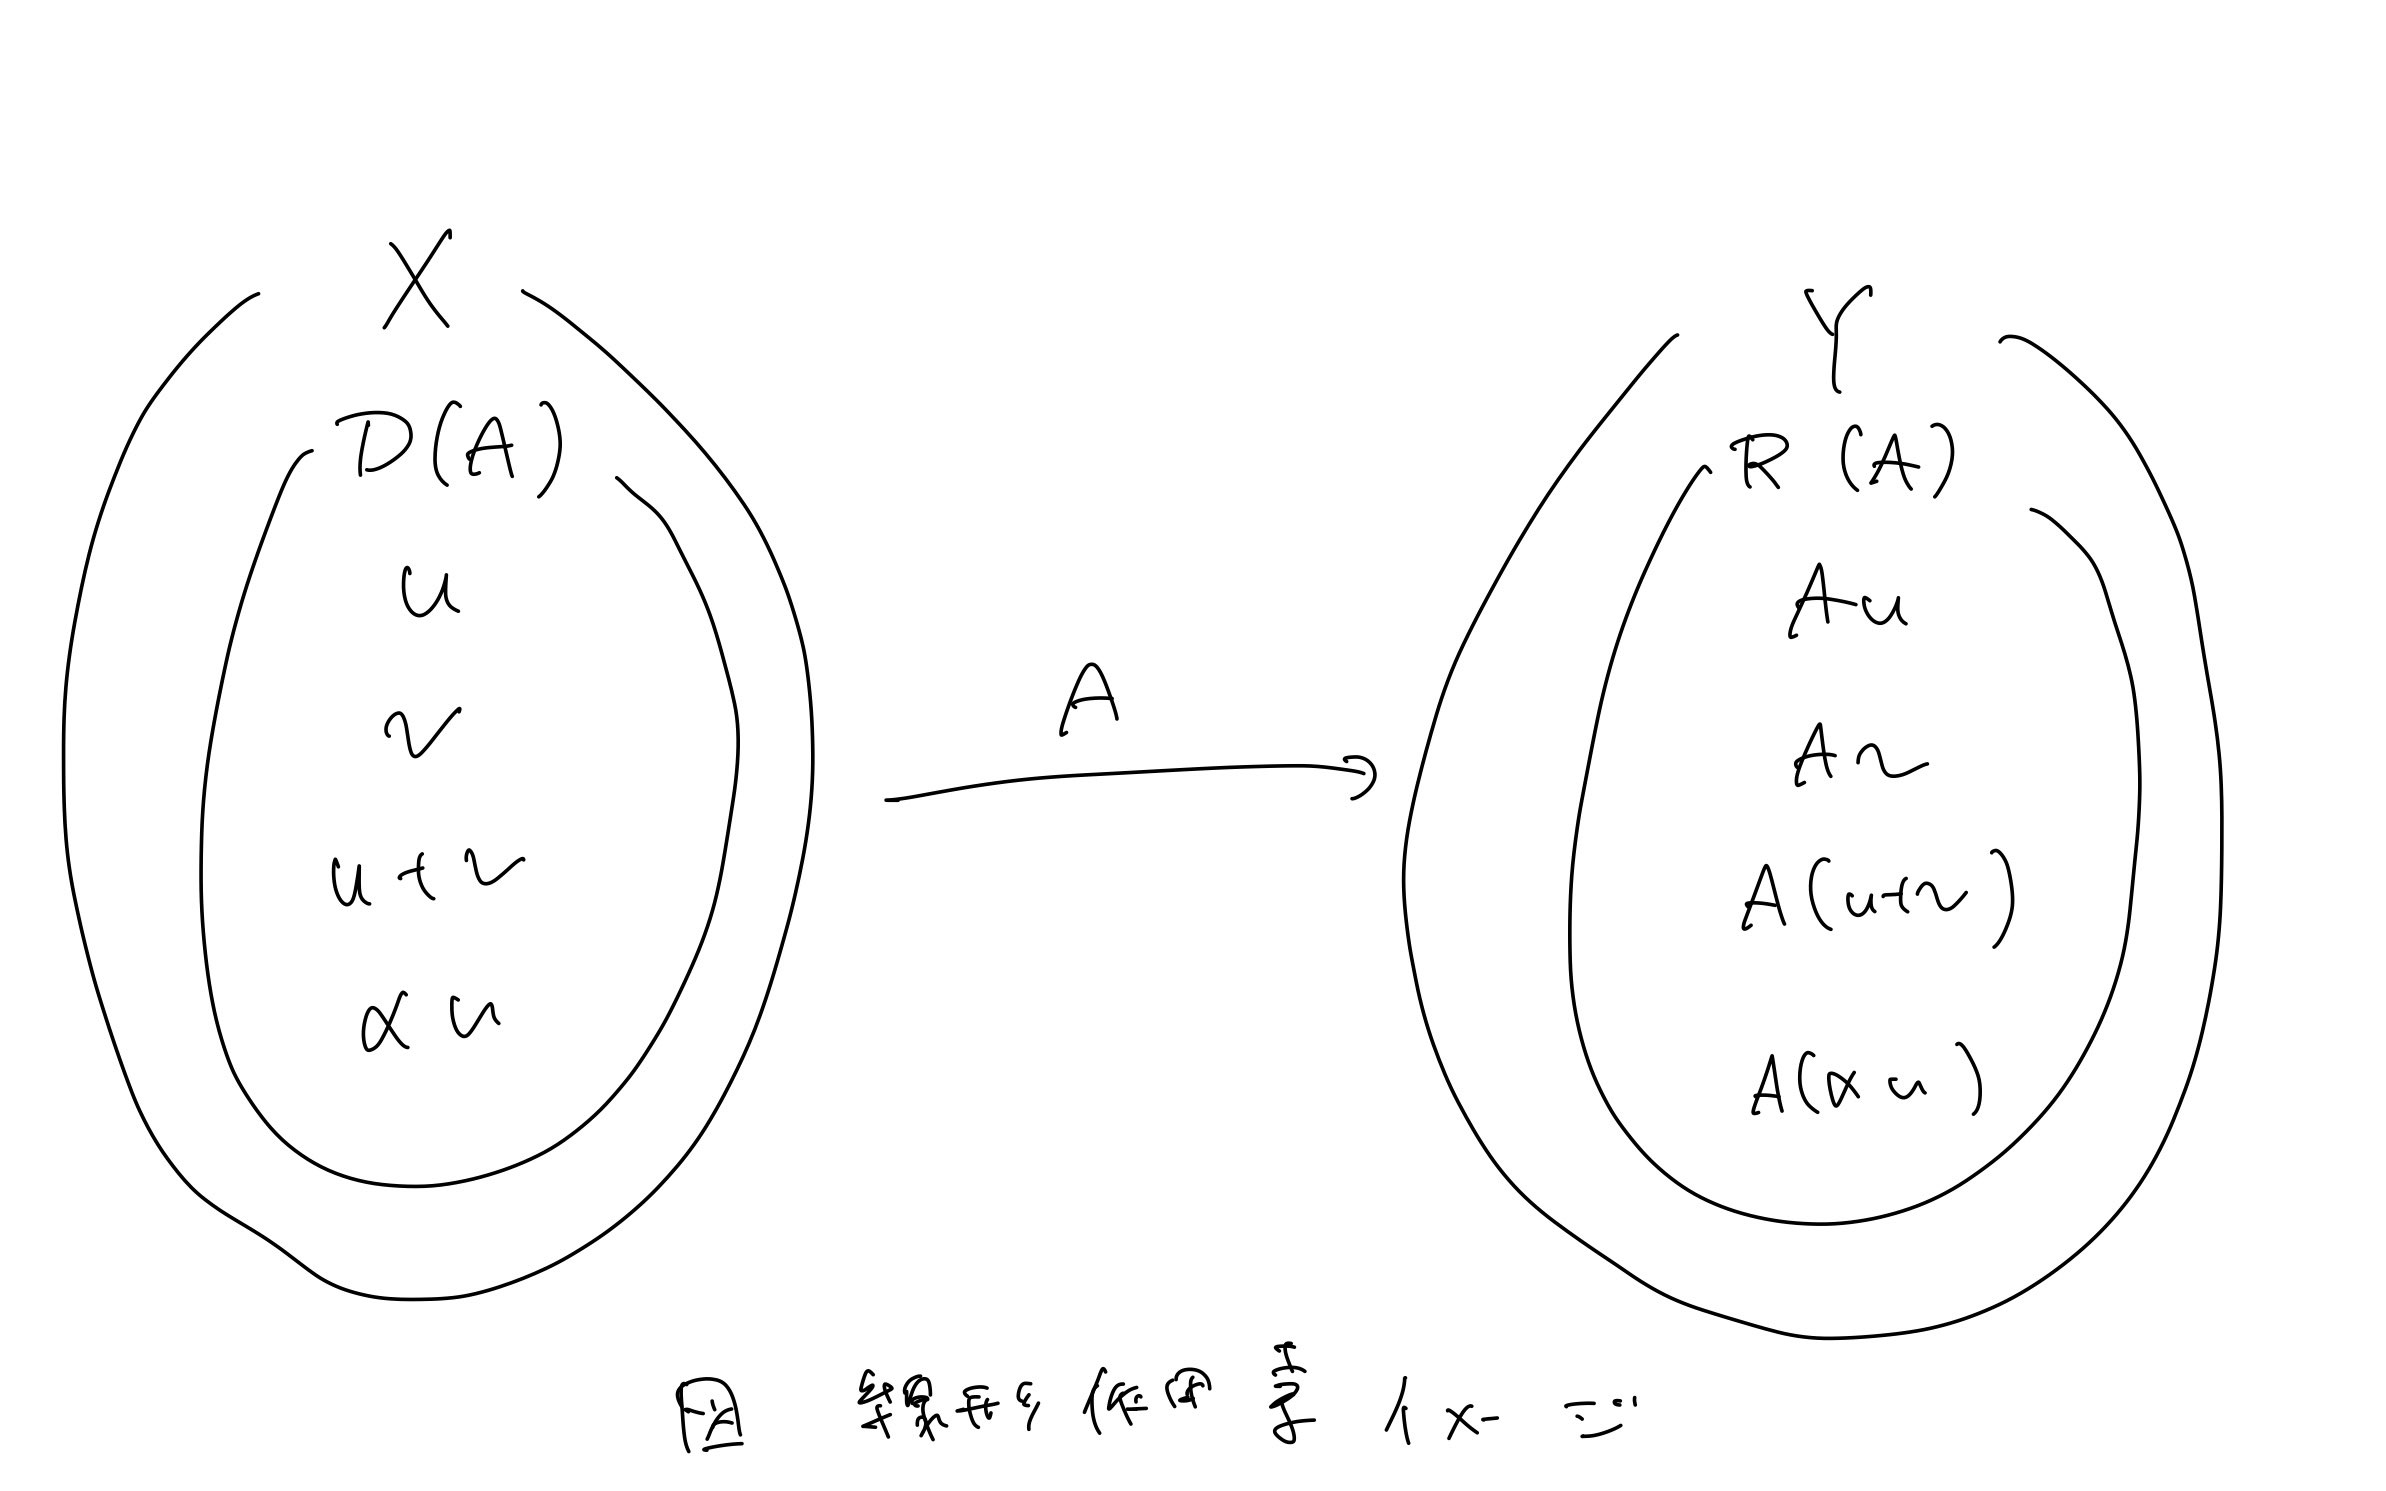 X
D(A)
u
v
u + v
α u
A
Y
R (A)
Au
Av
A(u+v)
A(α u)
図 線形作用素のイメージ